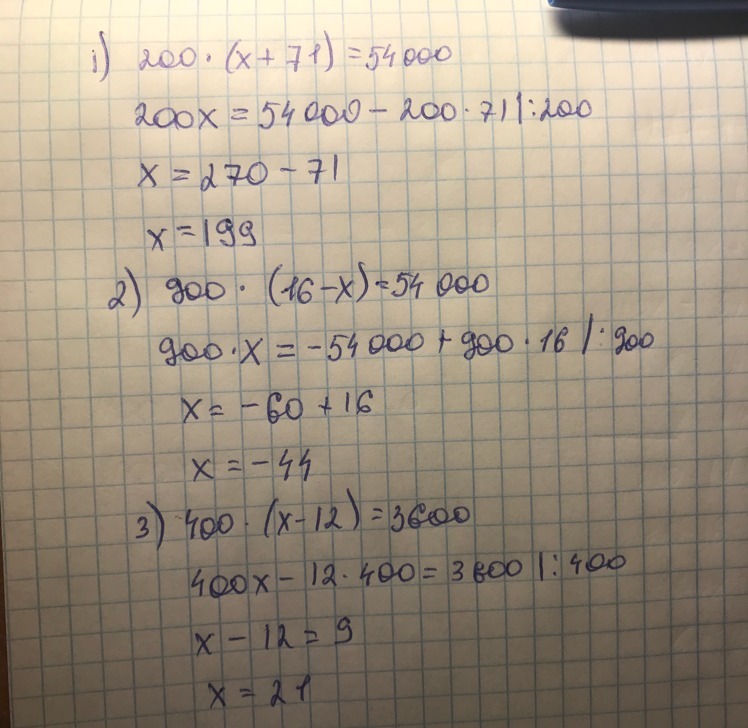 1) 200 · (x + 71) = 54 000
200x = 54 000 - 200 · 71 |:200
x = 270 - 71
x = 199
2) 900 · (16 - x) = 54 000
900 · x = - 54 000 + 900 · 16 |:900
x = - 60 + 16
x = - 44
3) 400 · (x - 12) = 3600
400x - 12 · 400 = 3600 |:400
x - 12 = 9
x = 21